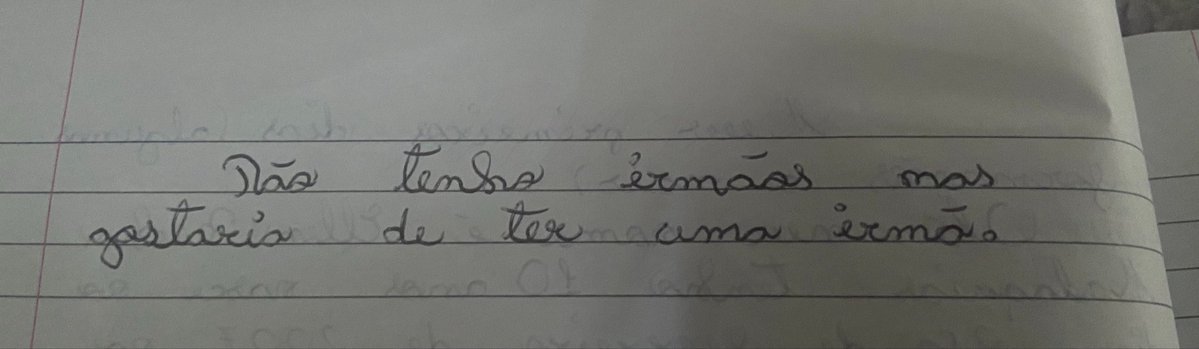 Não tenho irmãos mas
gostaria de ter uma irmã.